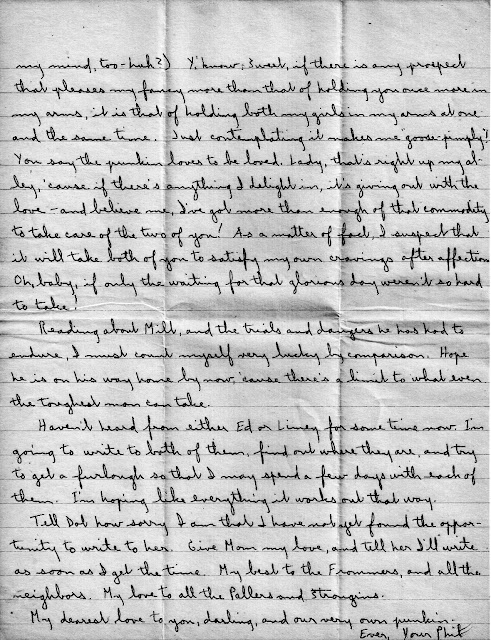 my mind, too - huh?) Y'know, Sweet, if there is any prospect
that pleases my fancy more than that of holding you once more in
my arms, it is that of holding both my girls in my arms at one
and the same time. Just contemplating it makes me "goose-pimply"!
You say the punkin loves to be loved. Lady, that's right up my al-
ley, 'cause if there's anything I delight in, it's giving out with the
love - and believe me, I've got more than enough of that commodity
to take care of the two of you! As a matter of fact, I suspect that
it will take both of you to satisfy my own cravings after affection
Oh, baby, if only the waiting for that glorious day weren't so hard
to take!
Reading about Milt, and the trials and dangers he has had to
endure, I must count myself very lucky by comparison. Hope
he is on his way home by now, 'cause there's a limit to what even
the toughest man can take.
Haven't heard from either Ed or Limey for some time now. I'm
going to write to both of them, find out where they are, and try
to get a furlough so that I may spend a few days with each of
them. I'm hoping like everything it works out that way.
Tell Dot how sorry I am that I have not yet found the oppor-
tunity to write to her. Give Mom my love, and tell her I'll write
as soon as I get the time. My best to the Frommers, and all the
neighbors. My love to all the Pallers and Strongins.
My dearest love to you, darling, and our very own punkin.
Ever, Your Phil